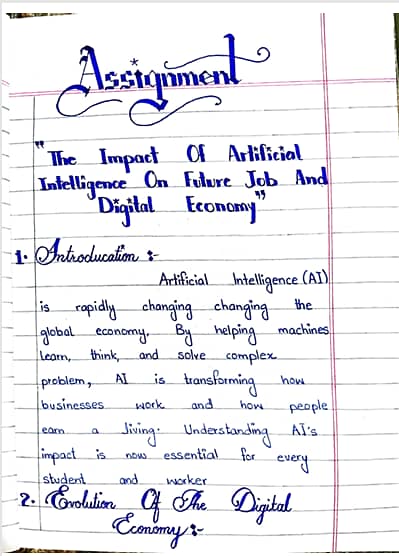 Assignment
"The Impact Of Artificial
Intelligence On Future Job And
Digital Economy"
1. Introducation :-
Artificial Intelligence (AI)
is rapidly changing changing the
global economy. By helping machines
learn, think, and solve complex
problem, AI is transforming how
businesses work and how people
earn a living. Understanding AI's
impact is now essential for every
student and worker
2. Evolution Of The Digital
Economy:-